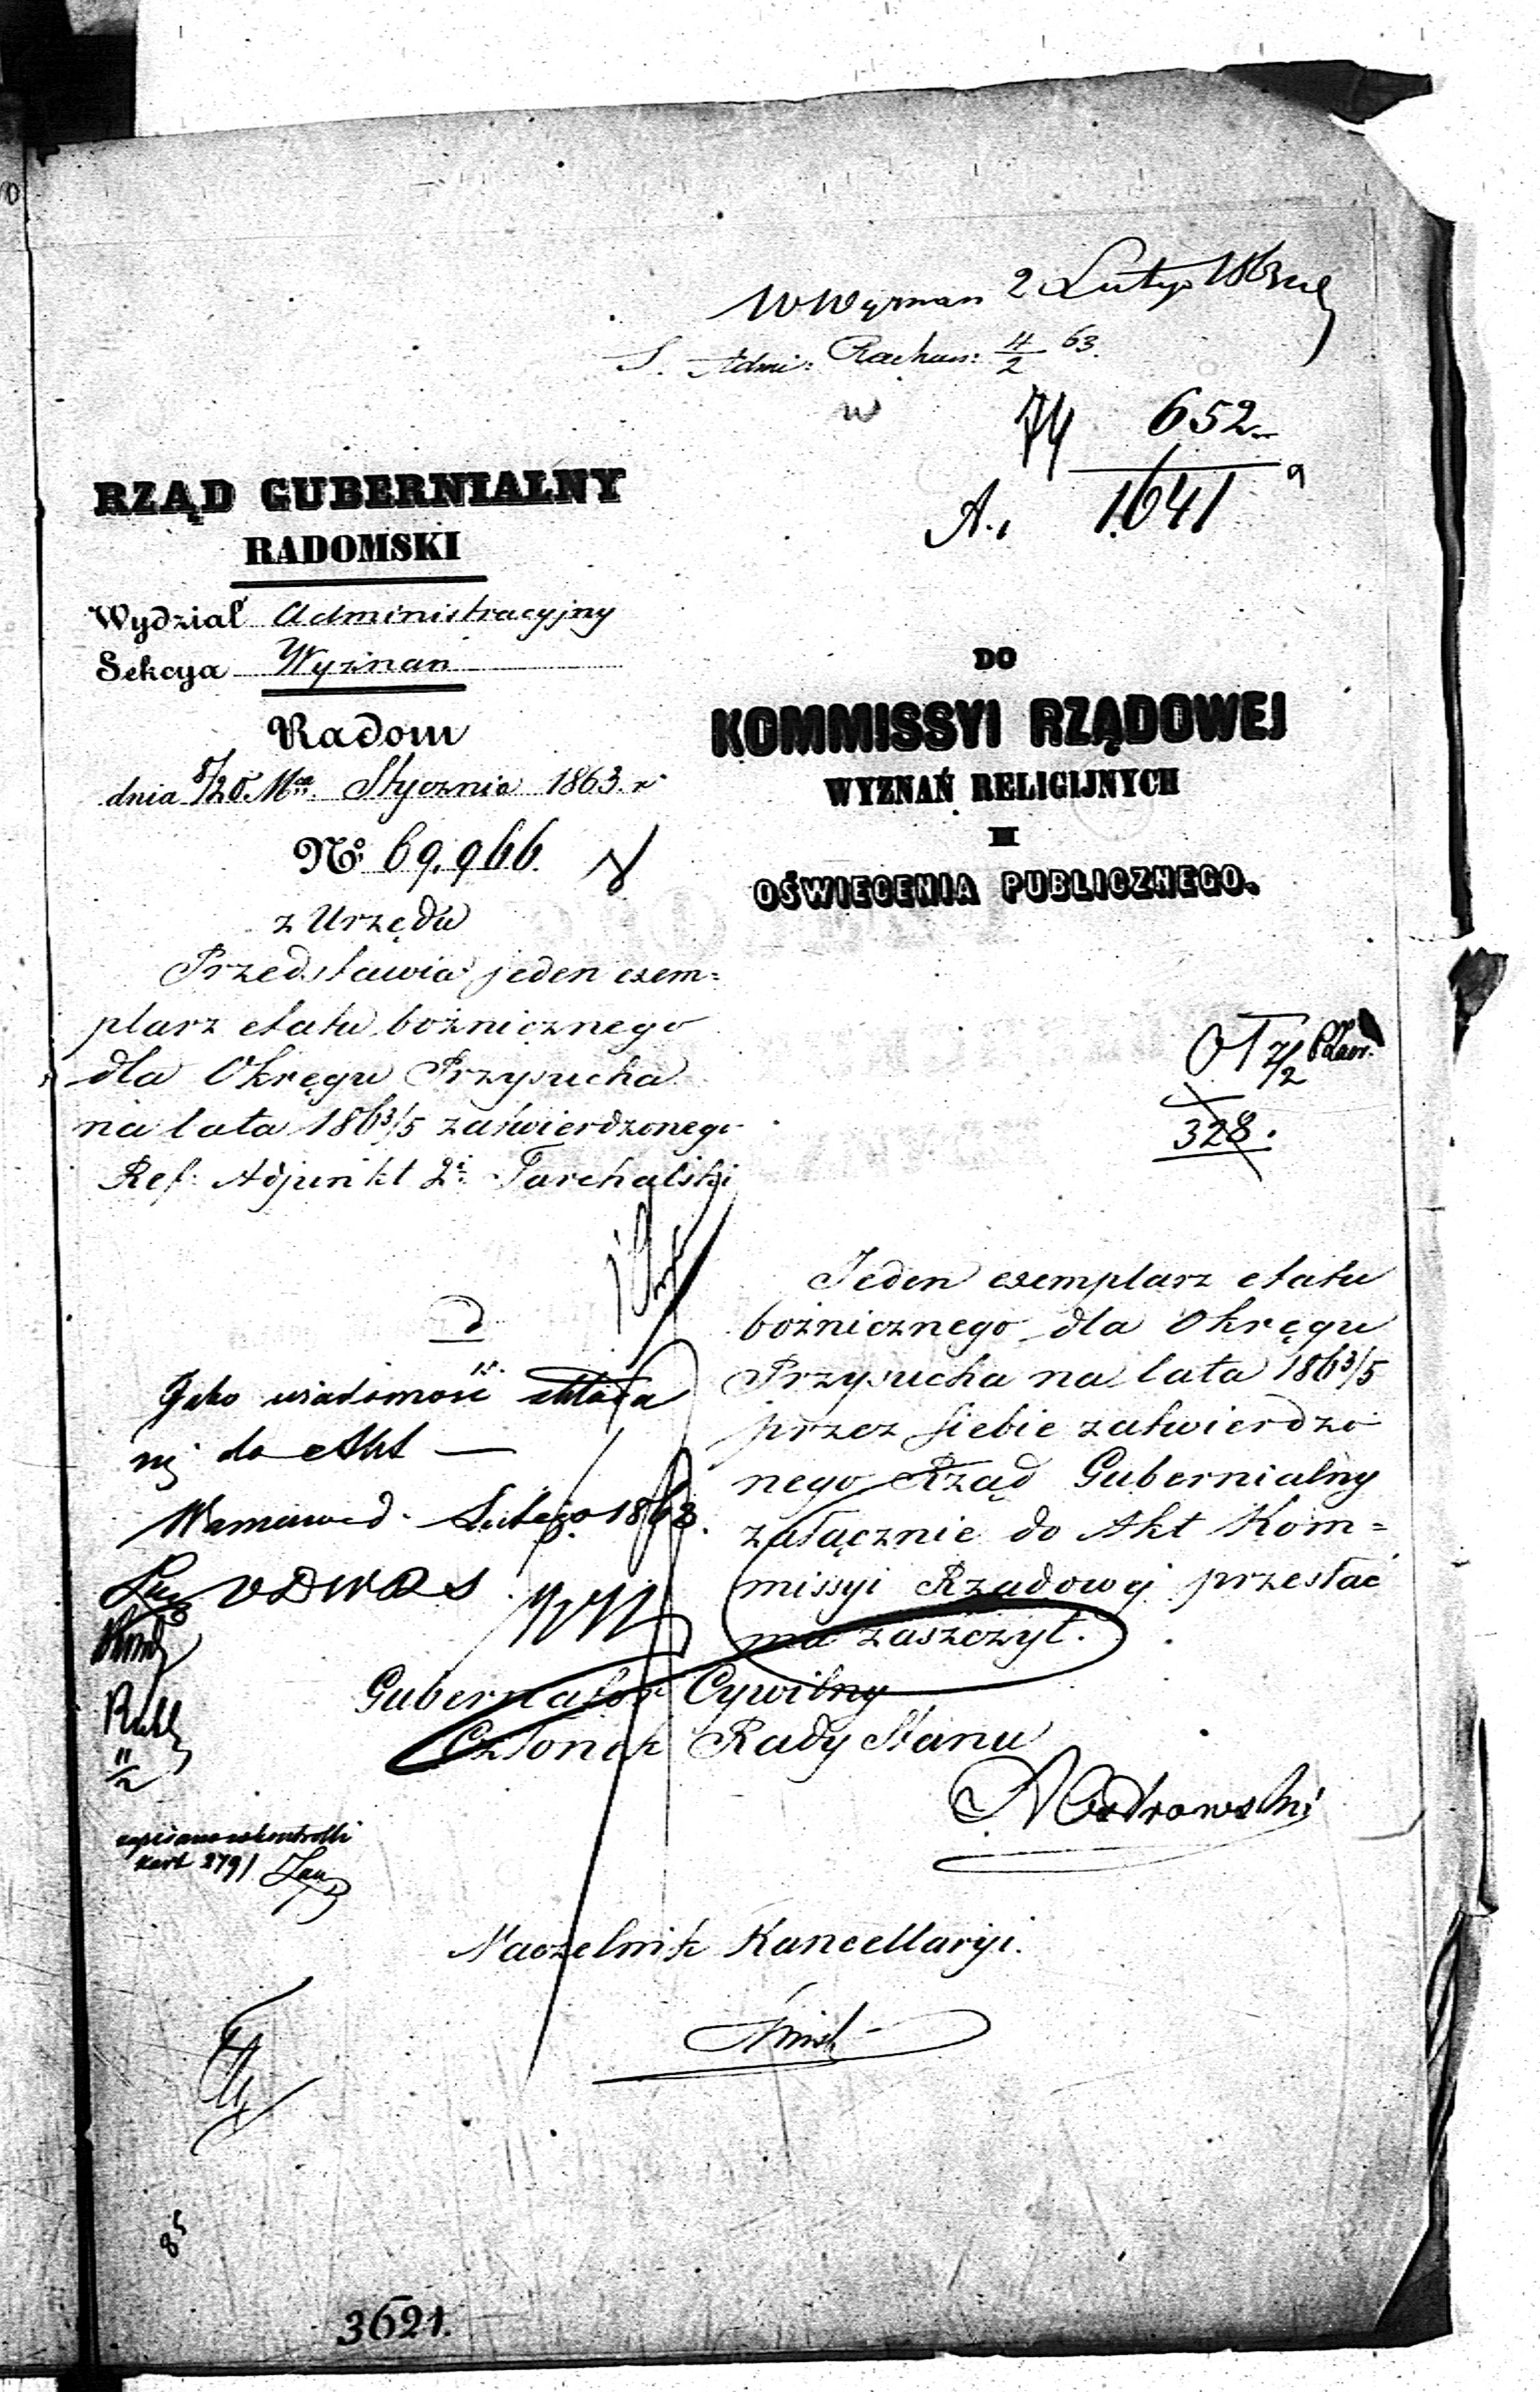 2 Lutego 1863
Rachun: 4/2 63.
w 74 652
A. 1641
RZĄD GUBERNIALNY
RADOMSKI
Wydział Administracyjny
Sekcya Wyznań
Radom
dnia 8/20 Mca. Stycznia 1863 r
No. 69,966.
z Urzędu
Przedstawia jeden exem=
plarz etatu bożnicznego
dla Okręgu Przysucha
na lata 1863/5 zatwierdzonego
Ref: Adjunkt 2i Tarchalski
DO
KOMMISSYI RZĄDOWEJ
WYZNAŃ RELIGIJNYCH
I
OŚWIECENIA PUBLICZNEGO.
328.
Jeden exemplarz etatu
bożnicznego dla Okręgu
Przysucha na lata 1863/5
przez siebie zatwierdzo
nego Rząd Gubernialny
załącznie do Akt Kom=
missyi Rządowej przesłać
ma zaszczyt.
Jako wiadomość składa
się do Akt —
Warszawa d. Lutego 1863.
Gubernator Cywilny
Członek Rady Stanu
11/2
zapisano w kontrolli
kart 279
Naczelnik Kancellaryi.
85
3621.